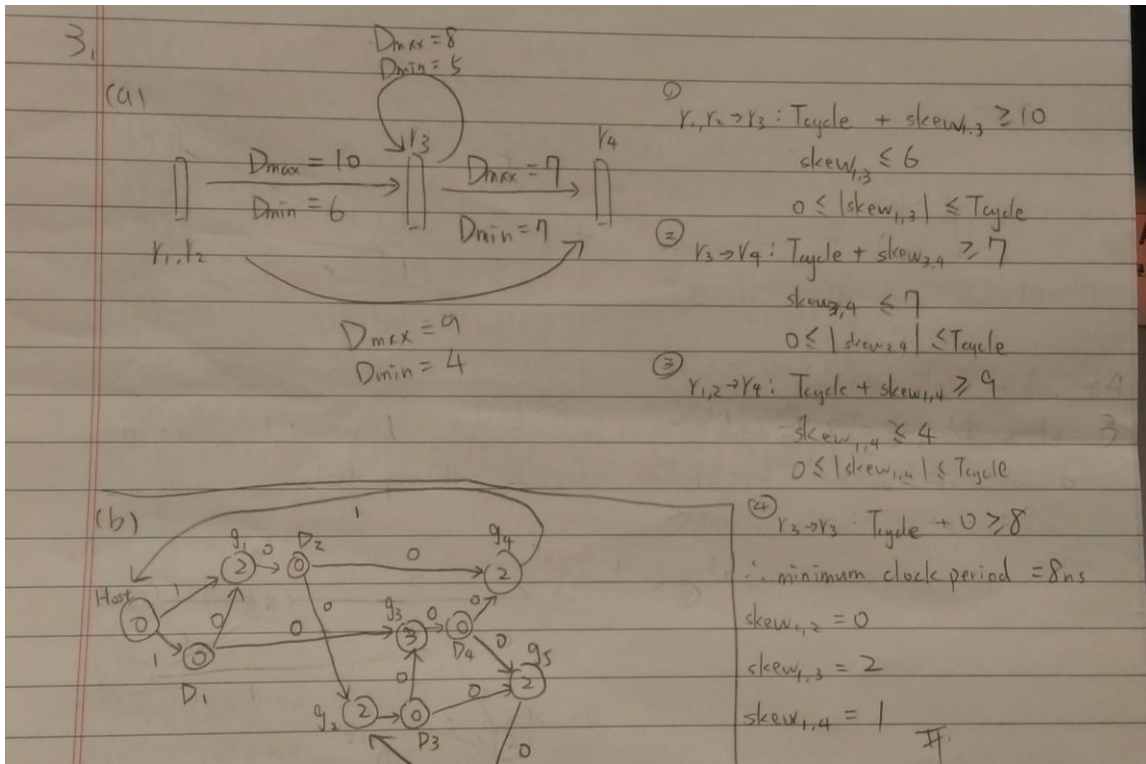 3.
(a)
Dmax = 8
Dmin = 5
r3
r4
Dmax = 10
Dmin = 6
Dmax = 7
Dmin = 7
r1, r2
Dmax = 9
Dmin = 4
①
r1, r2 → r3 : Tcycle + skew1,3 ≥ 10
skew1,3 ≤ 6
0 ≤ |skew1,3| ≤ Tcycle
②
r3 → r4 : Tcycle + skew3,4 ≥ 7
skew3,4 ≤ 7
0 ≤ |skew3,4| ≤ Tcycle
③
r1,2 → r4 : Tcycle + skew1,4 ≥ 9
skew1,4 ≤ 4
0 ≤ |skew1,4| ≤ Tcycle
④
r3 → r3 : Tcycle + 0 ≥ 8
∴ minimum clock period = 8ns
skew1,2 = 0
skew1,3 = 2
skew1,4 = 1
(b)
1
g1
0
D2
g4
2
0
0
2
Host
0
1
0
0
g3
0
0
3
0
D4
1
0
0
0
g5
D1
0
0
2
g2
2
0
D3
0